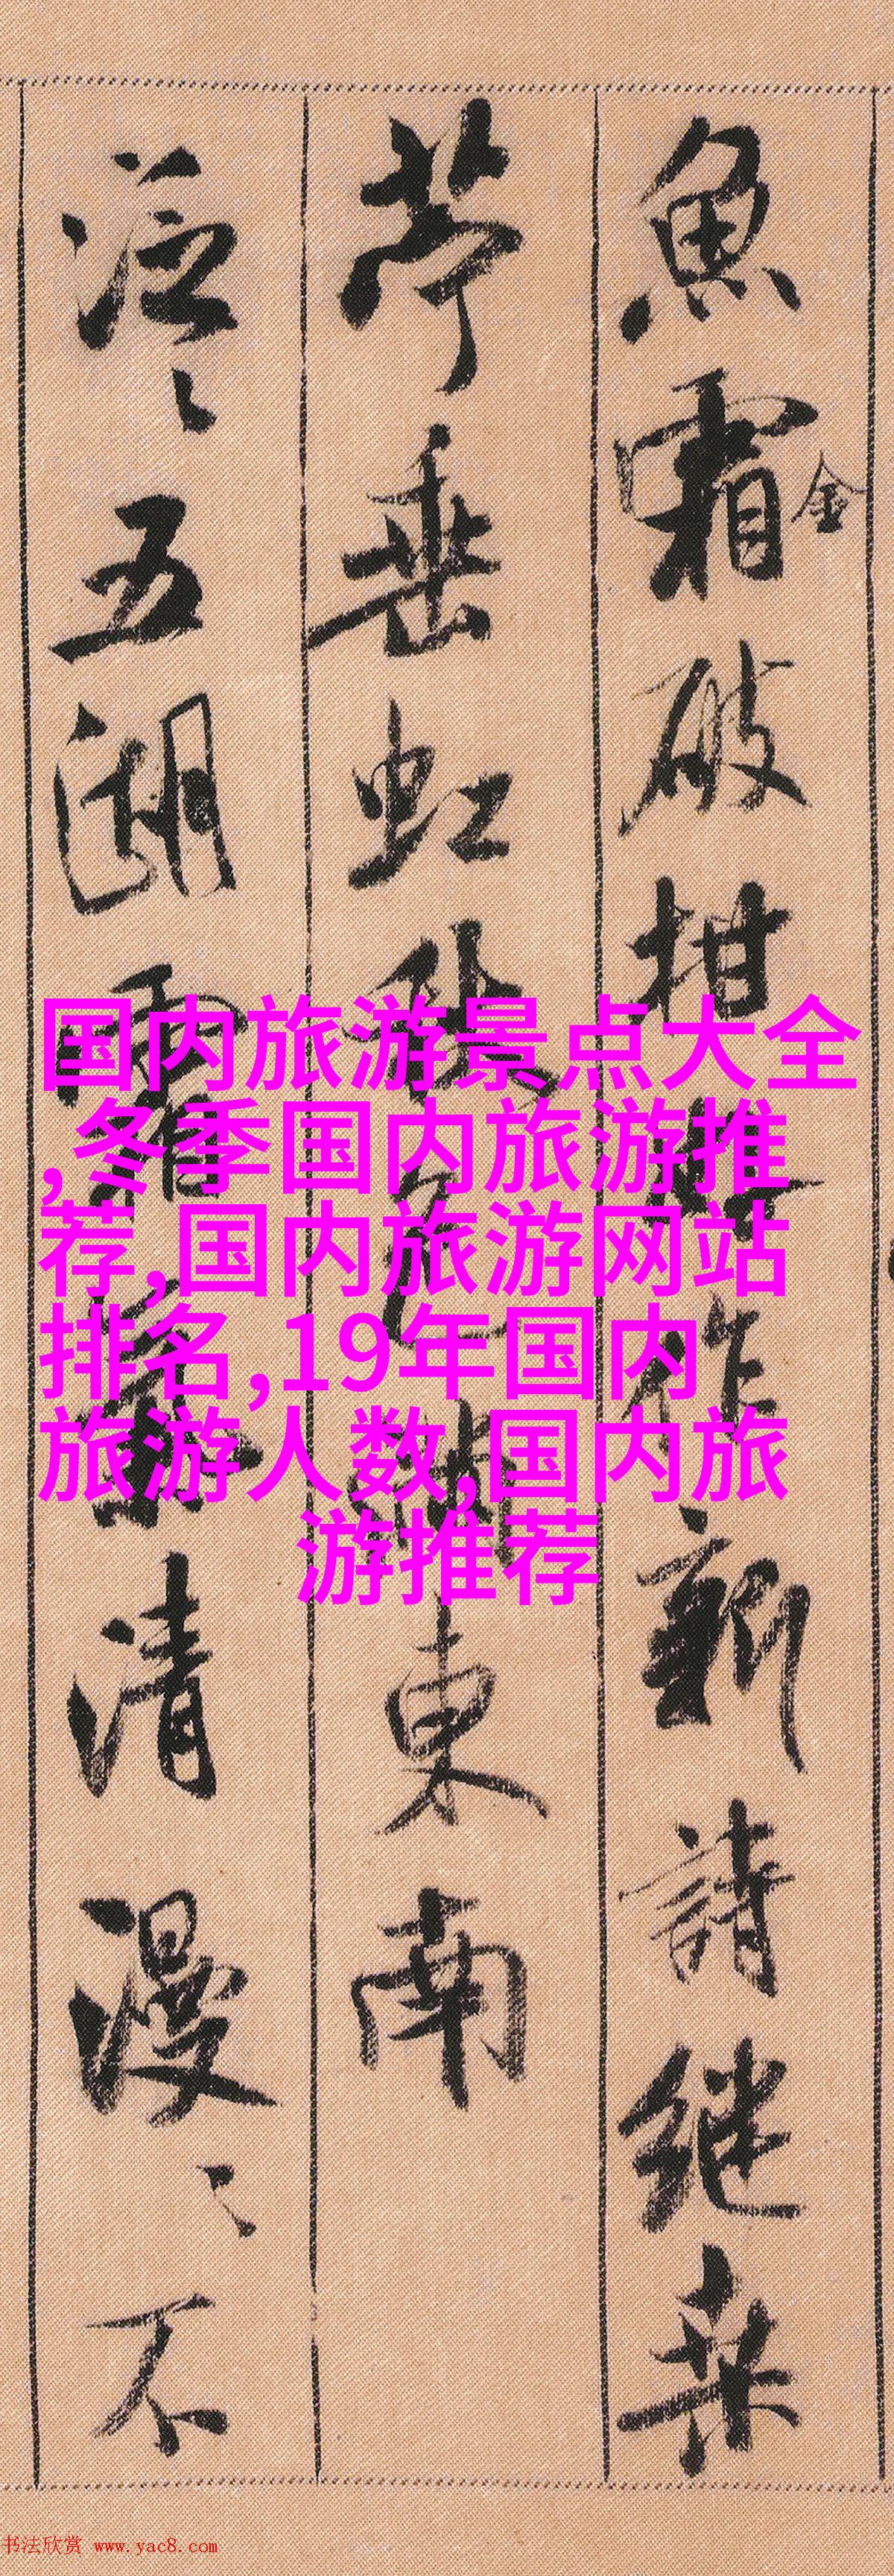 魚霜破柑好作新詩继桑
金
苧垂虹秋色滿東南
泛〻五湖霜氣清漫〻不
国内旅游景点大全
,冬季国内旅游推
荐,国内旅游网站
排名,19年国内
旅游人数,国内旅
游推荐
书法欣赏 www.yac8.com